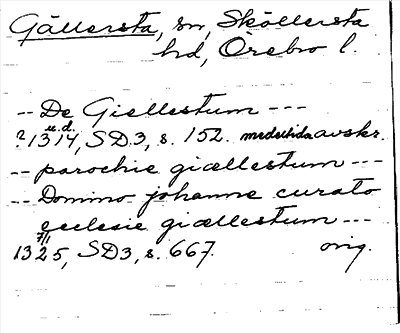 Gällersta, sn, Sköllersta
hd, Örebro l.
-- De Giellestum ---
u.d.
?1314, SD3, s. 152. medeltida avskr.
-- parochie giællestum ---
-- Domino johanne curato
ecclesie giællestum ---
7/1
1325, SD3, s. 667. orig.